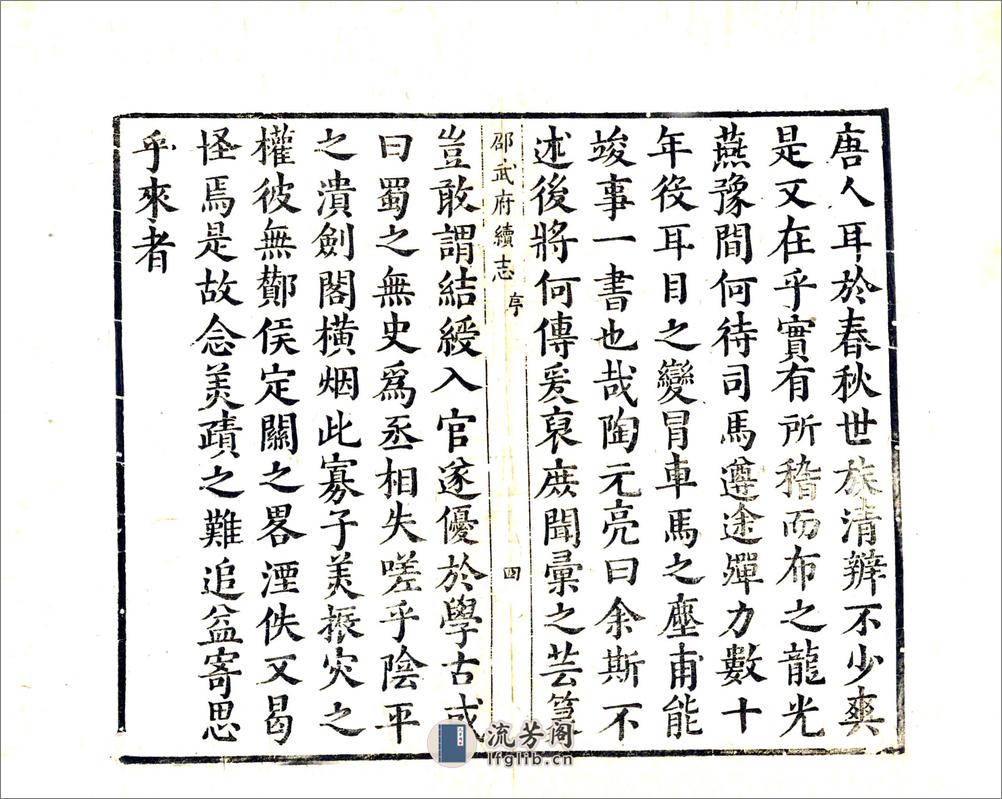 唐人耳於春秋世族清辯不少爽
是又在乎實有所稽而布之龍光
燕豫間何待司馬遵途殫力數十
年役耳目之變冒車馬之塵甫能
竣事一書也哉陶元亮曰余斯不
述後將何傳爰裒庶聞彙之芸篋
邵武府續志 序 四
豈敢謂結綬入官遂優於學古或
曰蜀之無史爲丞相失嗟乎陰平
之潰劍閣橫烟此寡子美振灾之
權彼無鄼侯定關之畧湮佚又曷
怪焉是故念美蹟之難追益寄思
乎來者
流芳阁
lfglib.cn